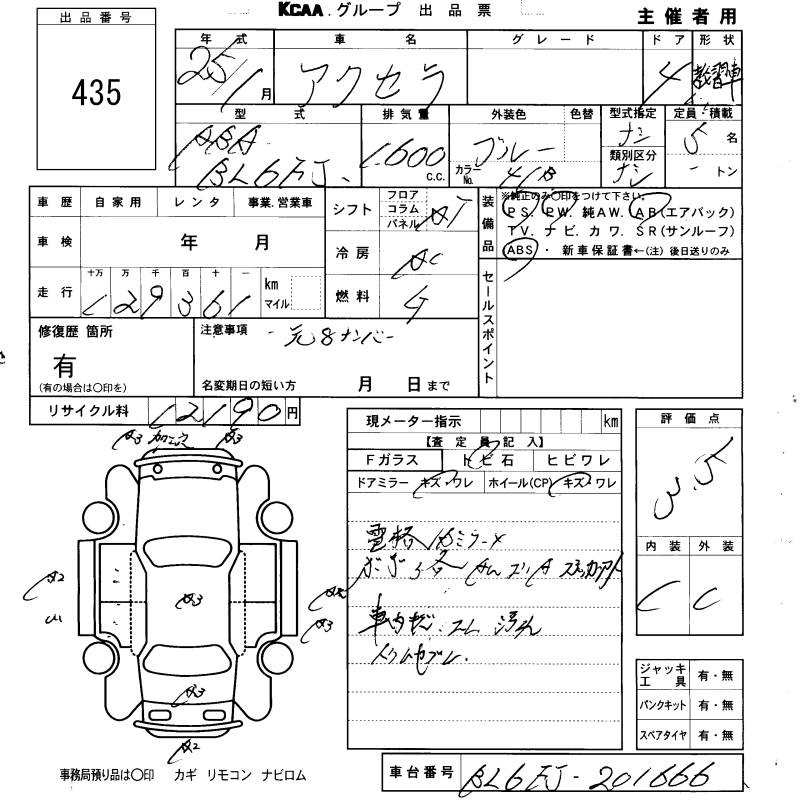 KCAA.グループ 出品票
主催者用
出品番号
435
年式 車名 グレード ドア 形状
25/1月 アクセラ 4 教習車
型式 排気量 外装色 色替 型式指定 定員・積載
ABA BL6FJ 1.600 C.C. ブルー カラーNo. 41B ナシ 類別区分 ナシ 5名 - トン
車歴 自家用 レンタ 事業.営業車
車検 年 月
走行 十万 万 千 百 十 一
129361 km マイル
シフト フロア コラム パネル AT
冷房 AC
燃料 G
装備品
※純正のみ○印をつけて下さい。
PS. PW. 純AW. AB(エアバック)
TV. ナビ. カワ. SR(サンルーフ)
ABS ・ 新車保証書←(注) 後日送りのみ
セールスポイント
修復歴 箇所
有
(有の場合は○印を)
注意事項 元8ナンバー
名変期日の短い方 月 日まで
リサイクル料 12190円
現メーター指示 km
【査定員記入】
Fガラス トビ石 ヒビワレ
ドアミラー キズ・ワレ ホイール(CP) キズ・ワレ
評価点
3.5
内装 外装
C C
A3 加工穴 A3
A2
A3
A3
A3
A2
車内
汚れ
ジャッキ工具 有・無
パンクキット 有・無
スペアタイヤ 有・無
事務局預り品は○印 カギ リモコン ナビロム
車台番号 BL6FJ-201666